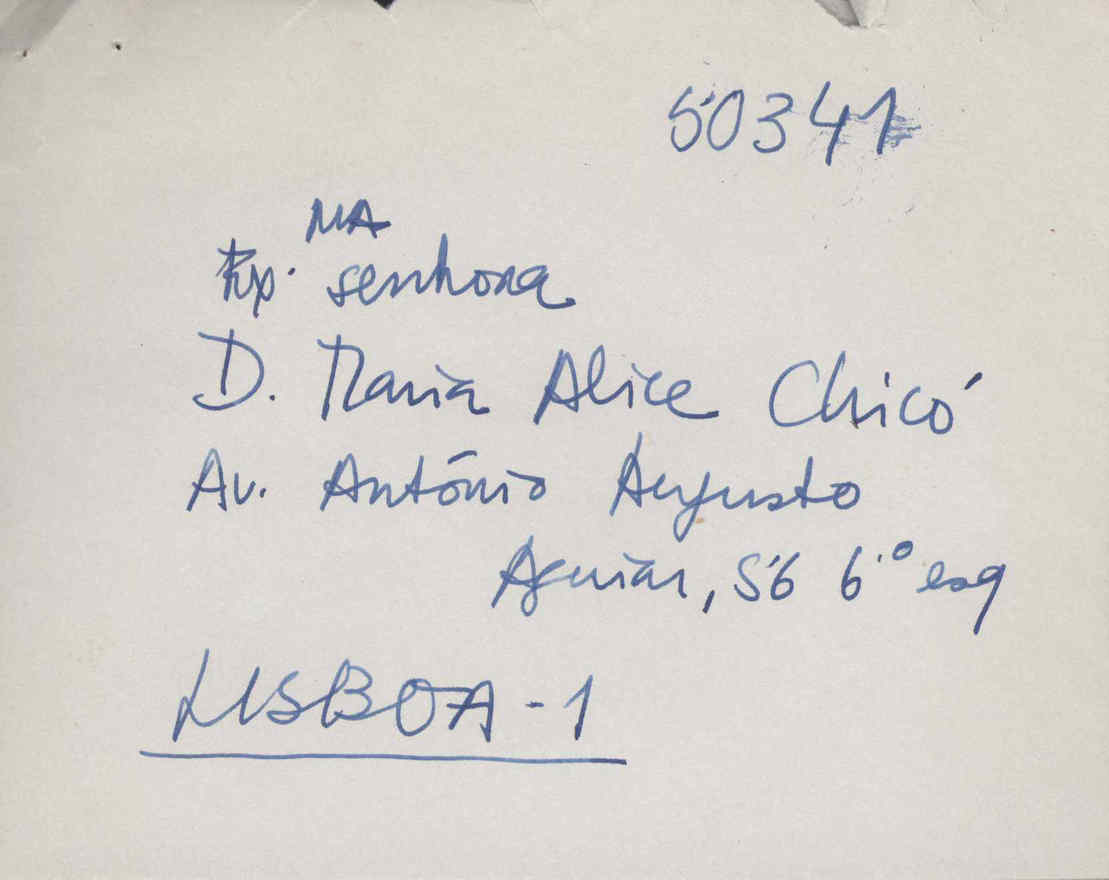 50341
MA
Exp. senhora
D. Maria Alice Chicó
Av. António Augusto
Aguiar, 56 6.º esq
LISBOA - 1